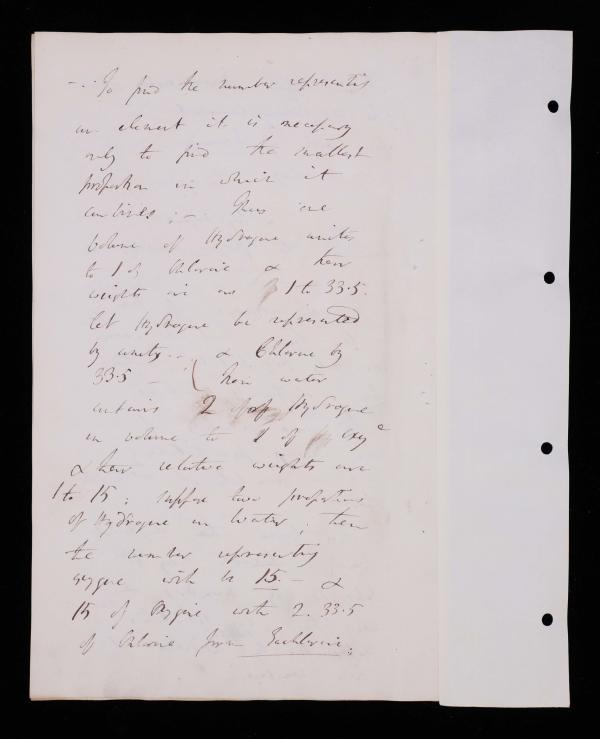 – . To find the number representing
an element it is necessary
only to find the smallest
proportion in which it
combines ; – Thus one
volume of Hydrogene unites
to 1 of Chlorine & their
weights are as 1 to 33.5.
let Hydrogene be represented
by unity . . & Chlorine by
33.5 – Now water
contains 2 of Hydrogene
in volume to 1 of oxye
& their relative weights are
1 to 15 ; suppose two proportions
of Hydrogene in Water ; then
the number representing
oxygene will be 15. – &
15 of Oxygene with 2. 33.5
of Chlorine form Euchlorine ;